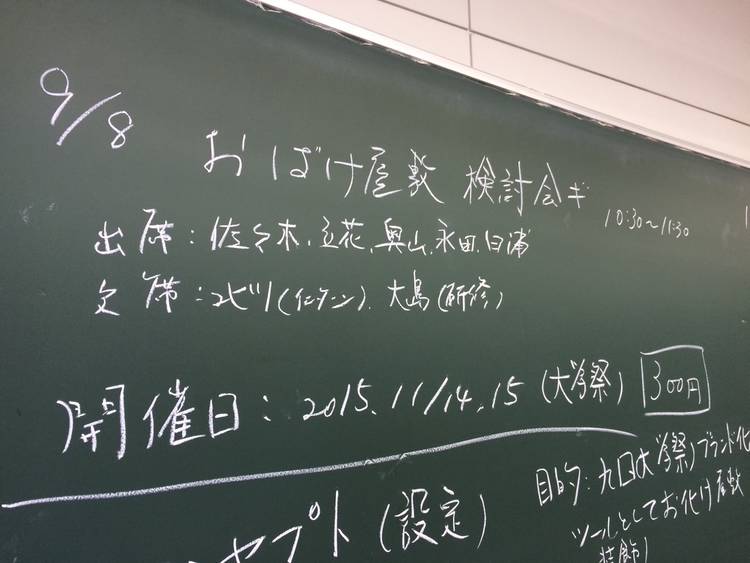 9/8
おばけ屋敷 検討会ギ 10:30～11:30
出席：佐々木、立花、奥山、永田、白浦
欠席：コビソ(インターン)、大島(研修)
開催日：2015.11/14.15 (大学祭) 300円
目的：九国大学祭)ブランド化
ツールとしてお化け屋敷
装飾)
セプト(設定)